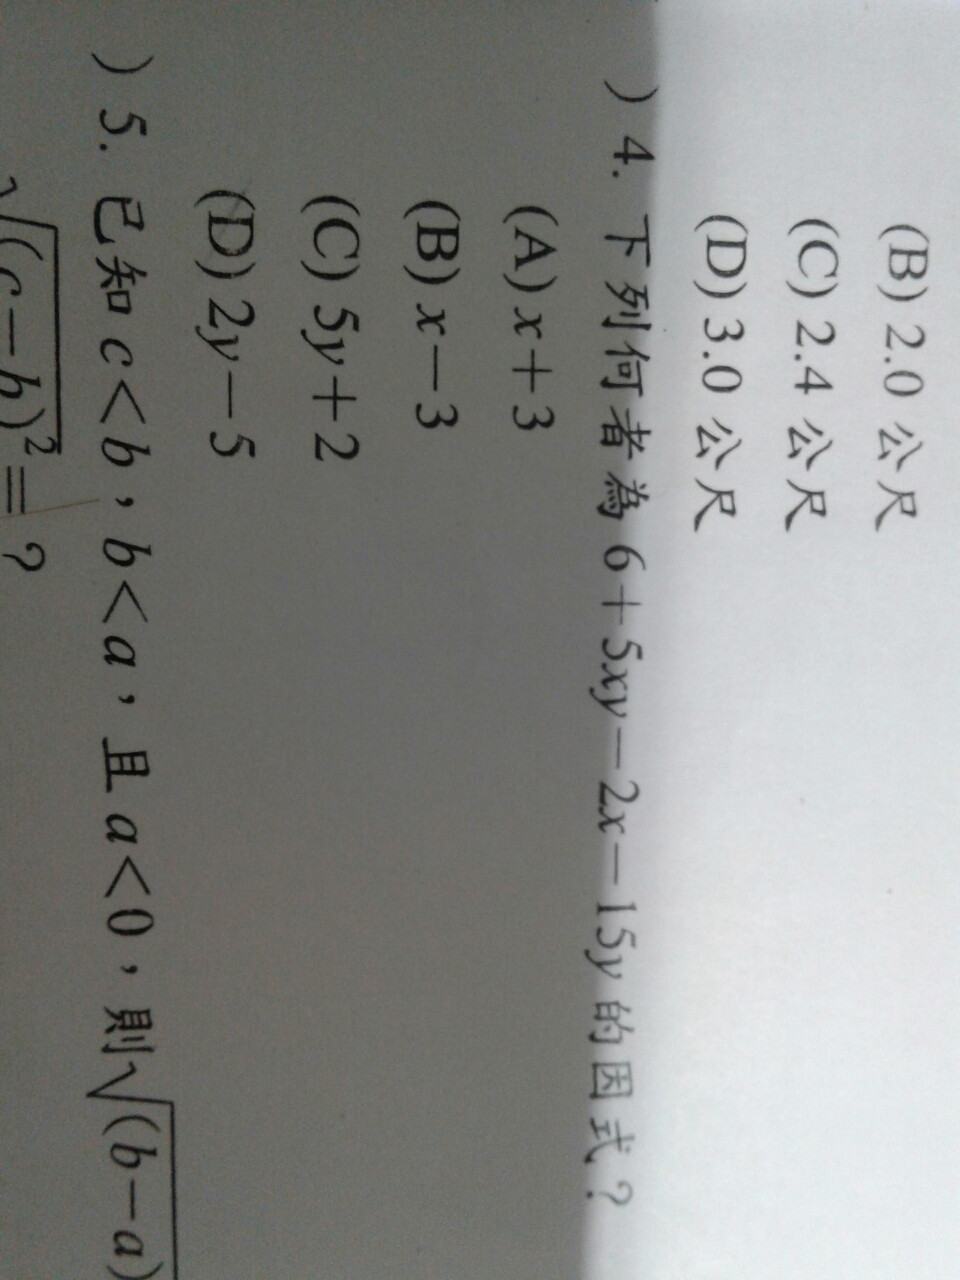 (B) 2.0 公尺
(C) 2.4 公尺
(D) 3.0 公尺
) 4. 下列何者為 6+5xy-2x-15y 的因式?
(A) x+3
(B) x-3
(C) 5y+2
(D) 2y-5
) 5. 已知 c<b,b<a,且 a<0,則√(b-a)
√(c-b)²=?